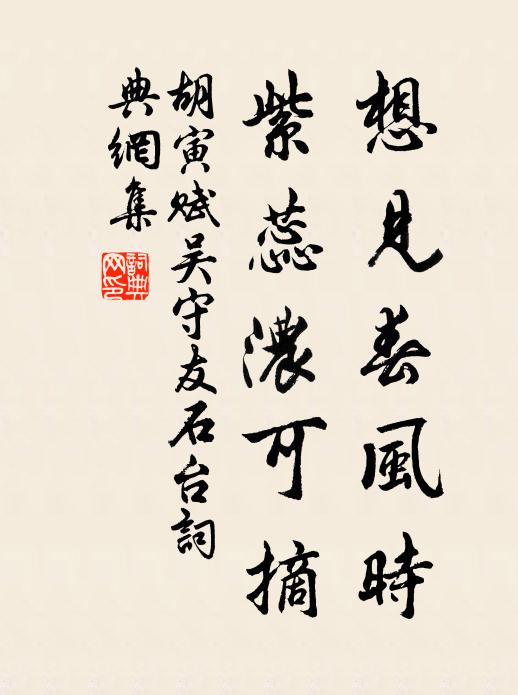 想見春風時
紫蕊濃可摘
胡寅賦吴守友石台詞
典網集
詞典網印